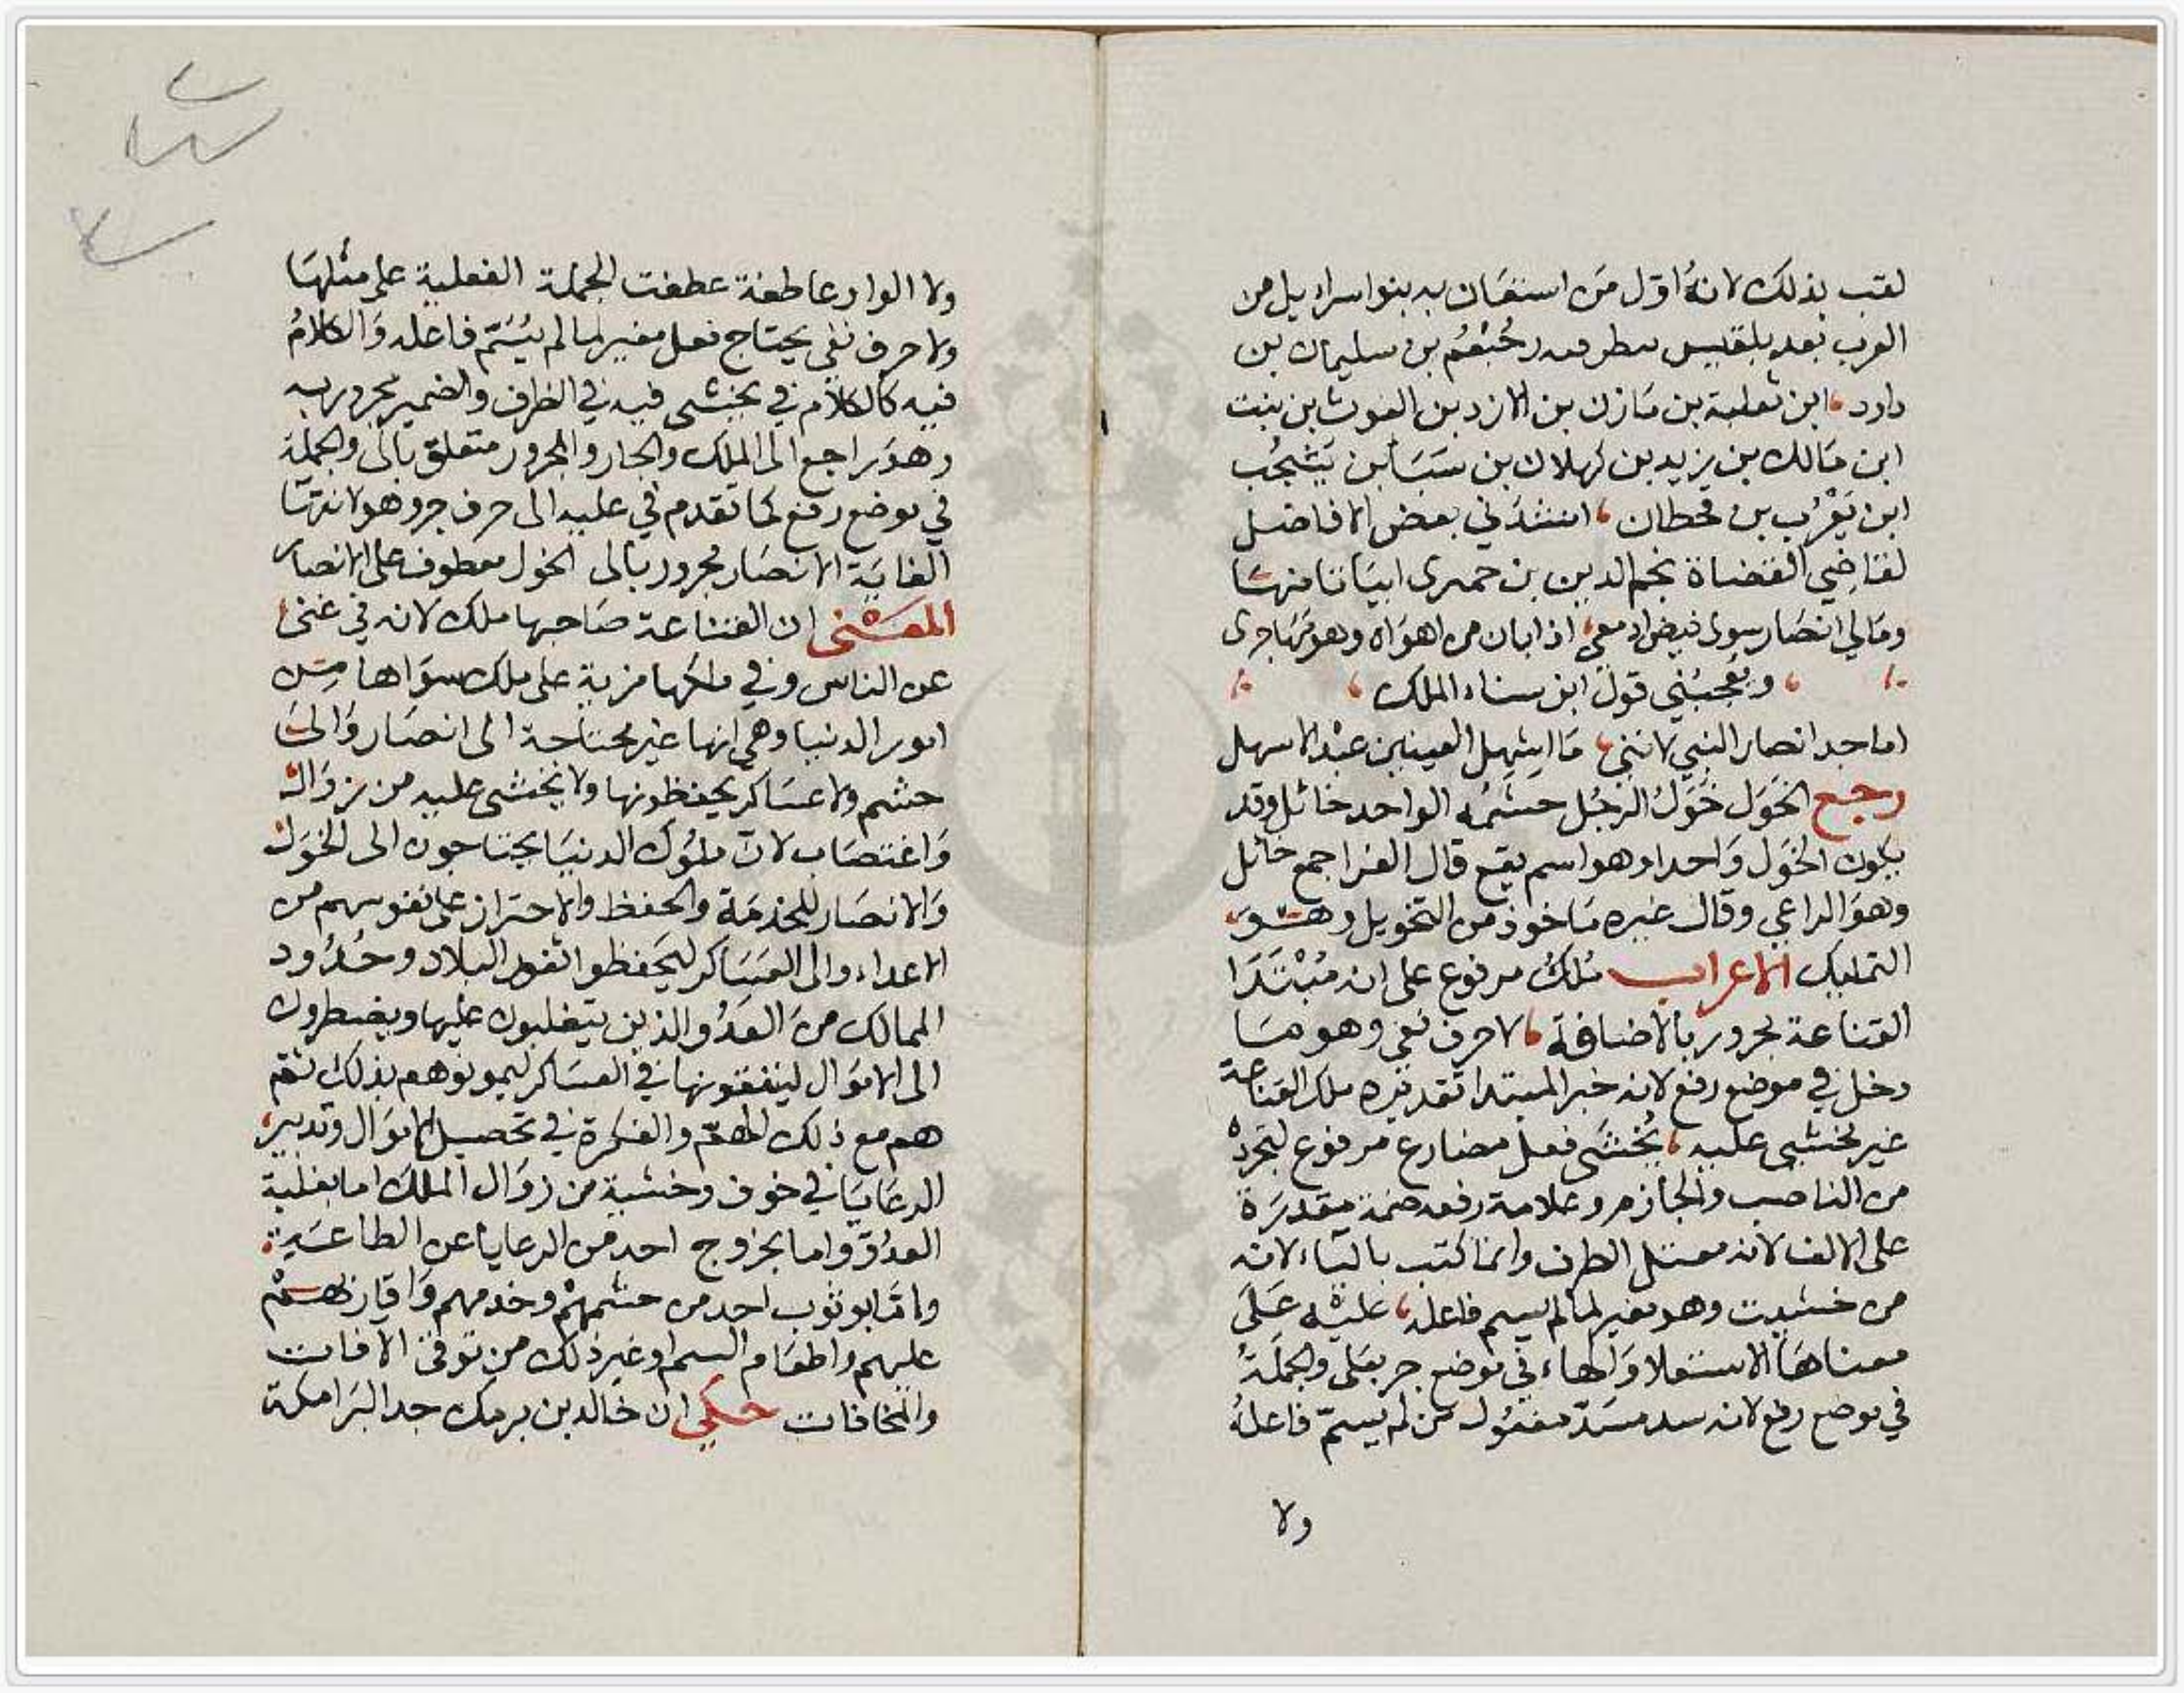 لقب بذلك لانه اول من استعان به بنوا اسرايل من
العرب بعد بلقيس رحبعم بن سليمان بن
داود ابن ثعلبة بن مازن بن الازد بن الغوث بن بنت
ابن مالك بن يزيد بن كهلان بن سبأ بن يشجب
ابن يعرب بن قحطان انشدني بعض الافاضل
لقاضي القضاة نجم الدين بن حصرى ابياتا منها
ومالي انصار سوى فيض ادمعي اذا بان من اهواه وهو مهاجرى
ويعجبني قول ابن سناء الملك
اما جد انصار النبي لانني ما ايتهل العينين عبد الاسهل
رجع الخول خول الرجل حشمه الواحد خائل وقد
يكون الخول واحدا وهو اسم يقع قال الفرا جمع خائل
وهو الراعي وقال غيره ماخوذ من التخويل وهو
التمليك الاعراب ملك مرفوع على انه مبتدا
القناعة مجرور بالاضافة لا حرف نفي وهو وما
دخل في موضع رفع لانه خبر المبتدا تقديره ملك القناعة
غير مخشى عليه يخشى فعل مضارع مرفوع لتجرده
من الناصب والجازم وعلامة رفعه ضمة مقدرة
على الالف لانه معتل الطرف وانما كتب بالياء لانه
من خشيت وهو مغير لما لم يسم فاعله عليه على
معناها الاستعلا والهاء في موضع جر بعلى والجملة
في موضع رفع لانه سد مسد مفعول من لم يسم فاعله
ولا
ولا الواو عاطفة عطفت الجملة الفعلية على مثلها
ولا حرف نفي يحتاج فعل مغير لما لم يسم فاعله والكلام
فيه كالكلام في يخشى فيه في الظرف والضمير مجرور به
وهو راجع الى الملك والجار والمجرور متعلق بالى والجملة
في موضع رفع كما تقدم في عليه الى حرف جر وهو لانتها
الغاية الانصار مجرور بالى الخول معطوف على الانصار
المعنى ان القناعة صاحبها ملك لانه في غنى
عن الناس وفي ملكها مزية على ملك سواها من
امور الدنيا وهي انها غير محتاجة الى انصار والى
حشم ولا عساكر يحفظونها ولا يخشى عليه من زوال
واغتصاب لان ملوك الدنيا يحتاجون الى الخول
والانصار للخدمة والحفظ والاحتراز على نفوسهم من
الاعداء والى العساكر ليحفظوا ثغور البلاد وحدود
الممالك من العدو الذين يتغلبون عليها ويضطرون
الى الاموال لينفقونها في العساكر ليمونوهم بذلك ثم
هم مع ذلك الهم والفكرة في تحصيل الاموال وتدبير
الرعايا في خوف وخشية من زوال الملك اما بغلبة
العدو واما بخروج احد من الرعايا عن الطاعة
واما بوثوب احد من حشمهم وخدمهم واقاربهم
عليهم واطعام السم او غير ذلك من توقى الافات
والمخافات حكي ان خالد بن برمك جد البرامكة